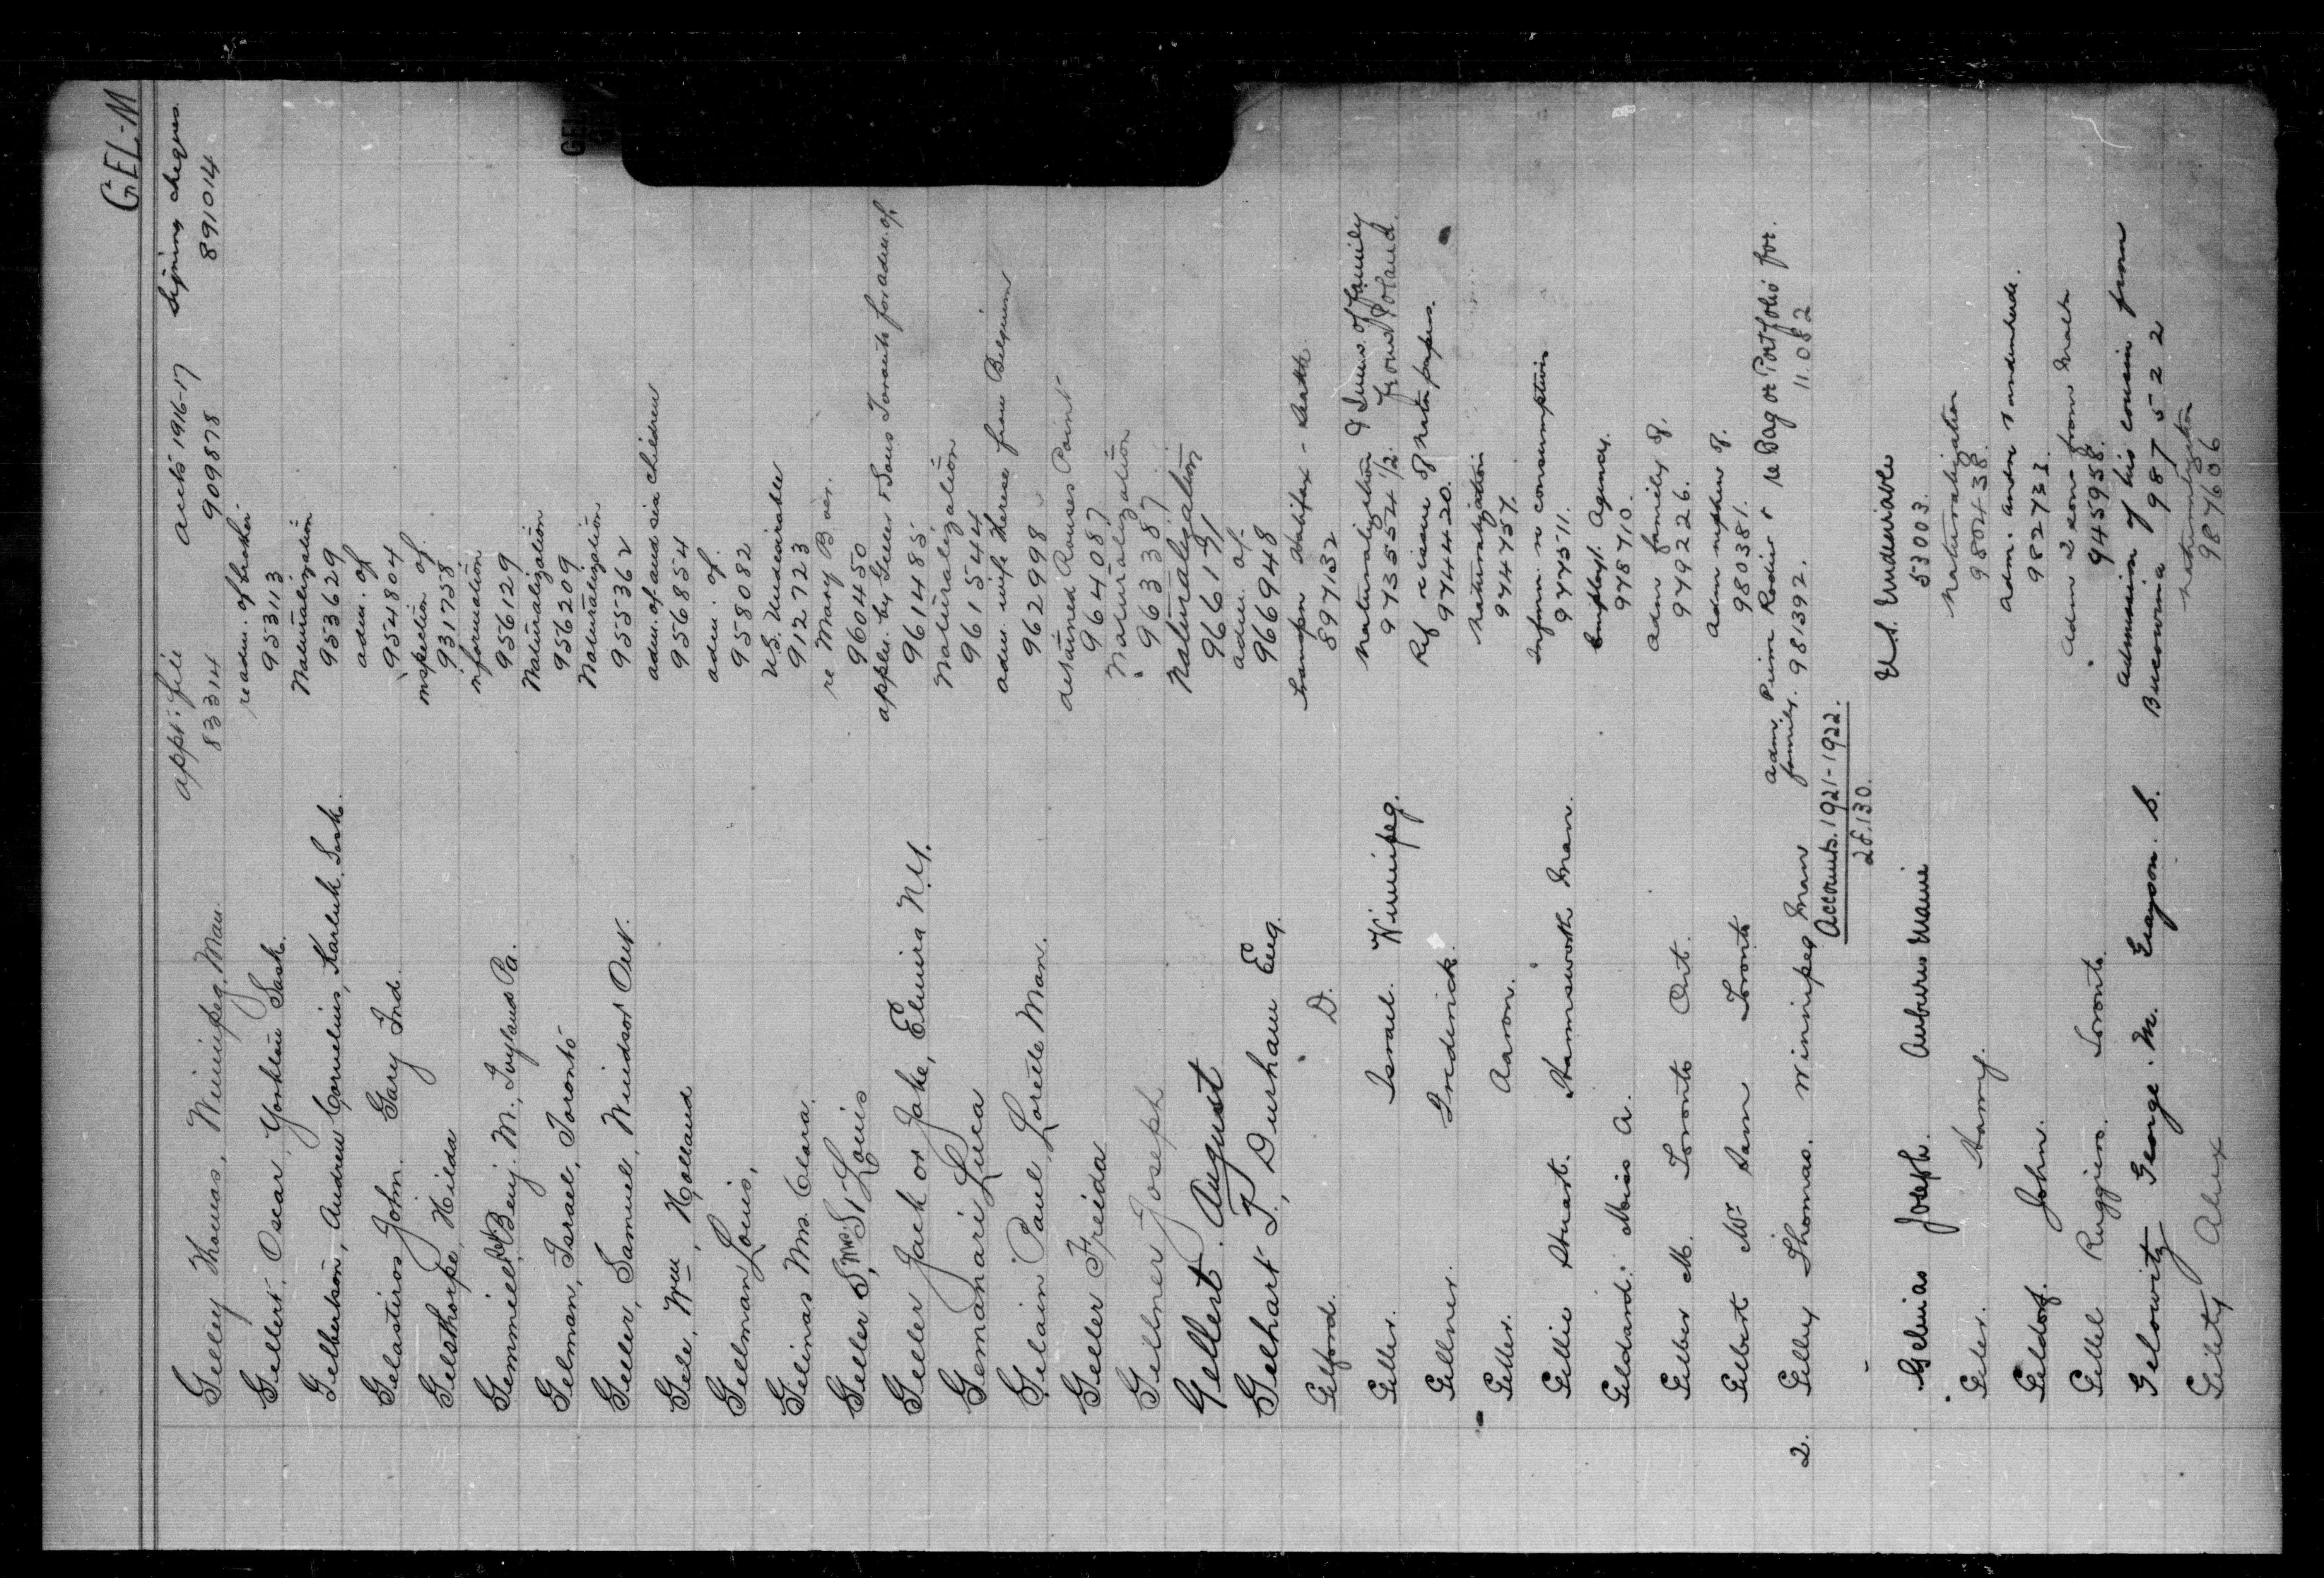 GEL-M
Gelley Thomas, Winnipeg, Man. appt: file accts 1916-17 Signing cheques.
83314 909878 891014
Gellert, Oscar, Yorkton Sask. re adm. of brother
953113
Gelbertson, Andrew Cornelius, Karluk, Sask. Naturalization
953629
Gelastiros John. Gary Ind. adm. of
954804
Gelsthorpe, Hilda inspection of
931758
Gemmiell, Benj. M., Ivyland Pa. information
956129
Gelman, Israel, Toronto Naturalization
956209
Geller, Samuel, Windsor Ont. Naturalization
955362
Gele, Wm, Holland adm. of and six children
956854
Gellman Louis, adm. of.
958082
Gelinas Mrs. Clara. U.S. Undesirable
912723
Geller S, Mrs St Louis re Mary B
960450
Geller Jack or Jake, Elmira N.Y. applcn. by Geller & Sons Toronto for adm. of.
961485
Gemanari Luca Naturalization
961544
Gelain Paul, Lorette Man. adm. wife Therese from Belgium
962998
Geller Freida detained Rouses Point
964087
Gellner Joseph Naturalization
963387
Gellert. August Naturalization
966191
Gelhart T., Durham Eng. adm. of.
966948
Gelford. D. Halifax - Death.
897132
Geller. Israel. Winnipeg. Naturalization & of family
973555 4 1/2. from Poland.
Gellner. Frederick. Ref reissue of papers.
974420.
Geller. Aaron. Naturalization
974757.
Gellie Stuart. Harmsworth Man. Inform. re consumption
977511.
Geldard: Miss A. Employt. Agency.
978710.
Gelber M. Toronto Ont. Adm family of.
979226.
Gelbert Mr Sam Toronto Adm nephew of.
980381.
2. Gelley Thomas. Winnipeg Man adm. Rodier & re Bag or Portfolio for.
family. 981392. 11.082
Accounts. 1921-1922.
28.130.
Gelinas Joseph. Auburn Maine U.S. Undesirable
53003.
Geler. Harry. Naturalization
980438.
Geldorf. John. Adm.
982733.
Gellel Ruggiero. Toronto. Adm 2 sons from Malta
945958.
Gelowitz George. M. Grayson. S. Admission of his cousin from
Bucowina 987522
Gelety Alex naturalization
987606